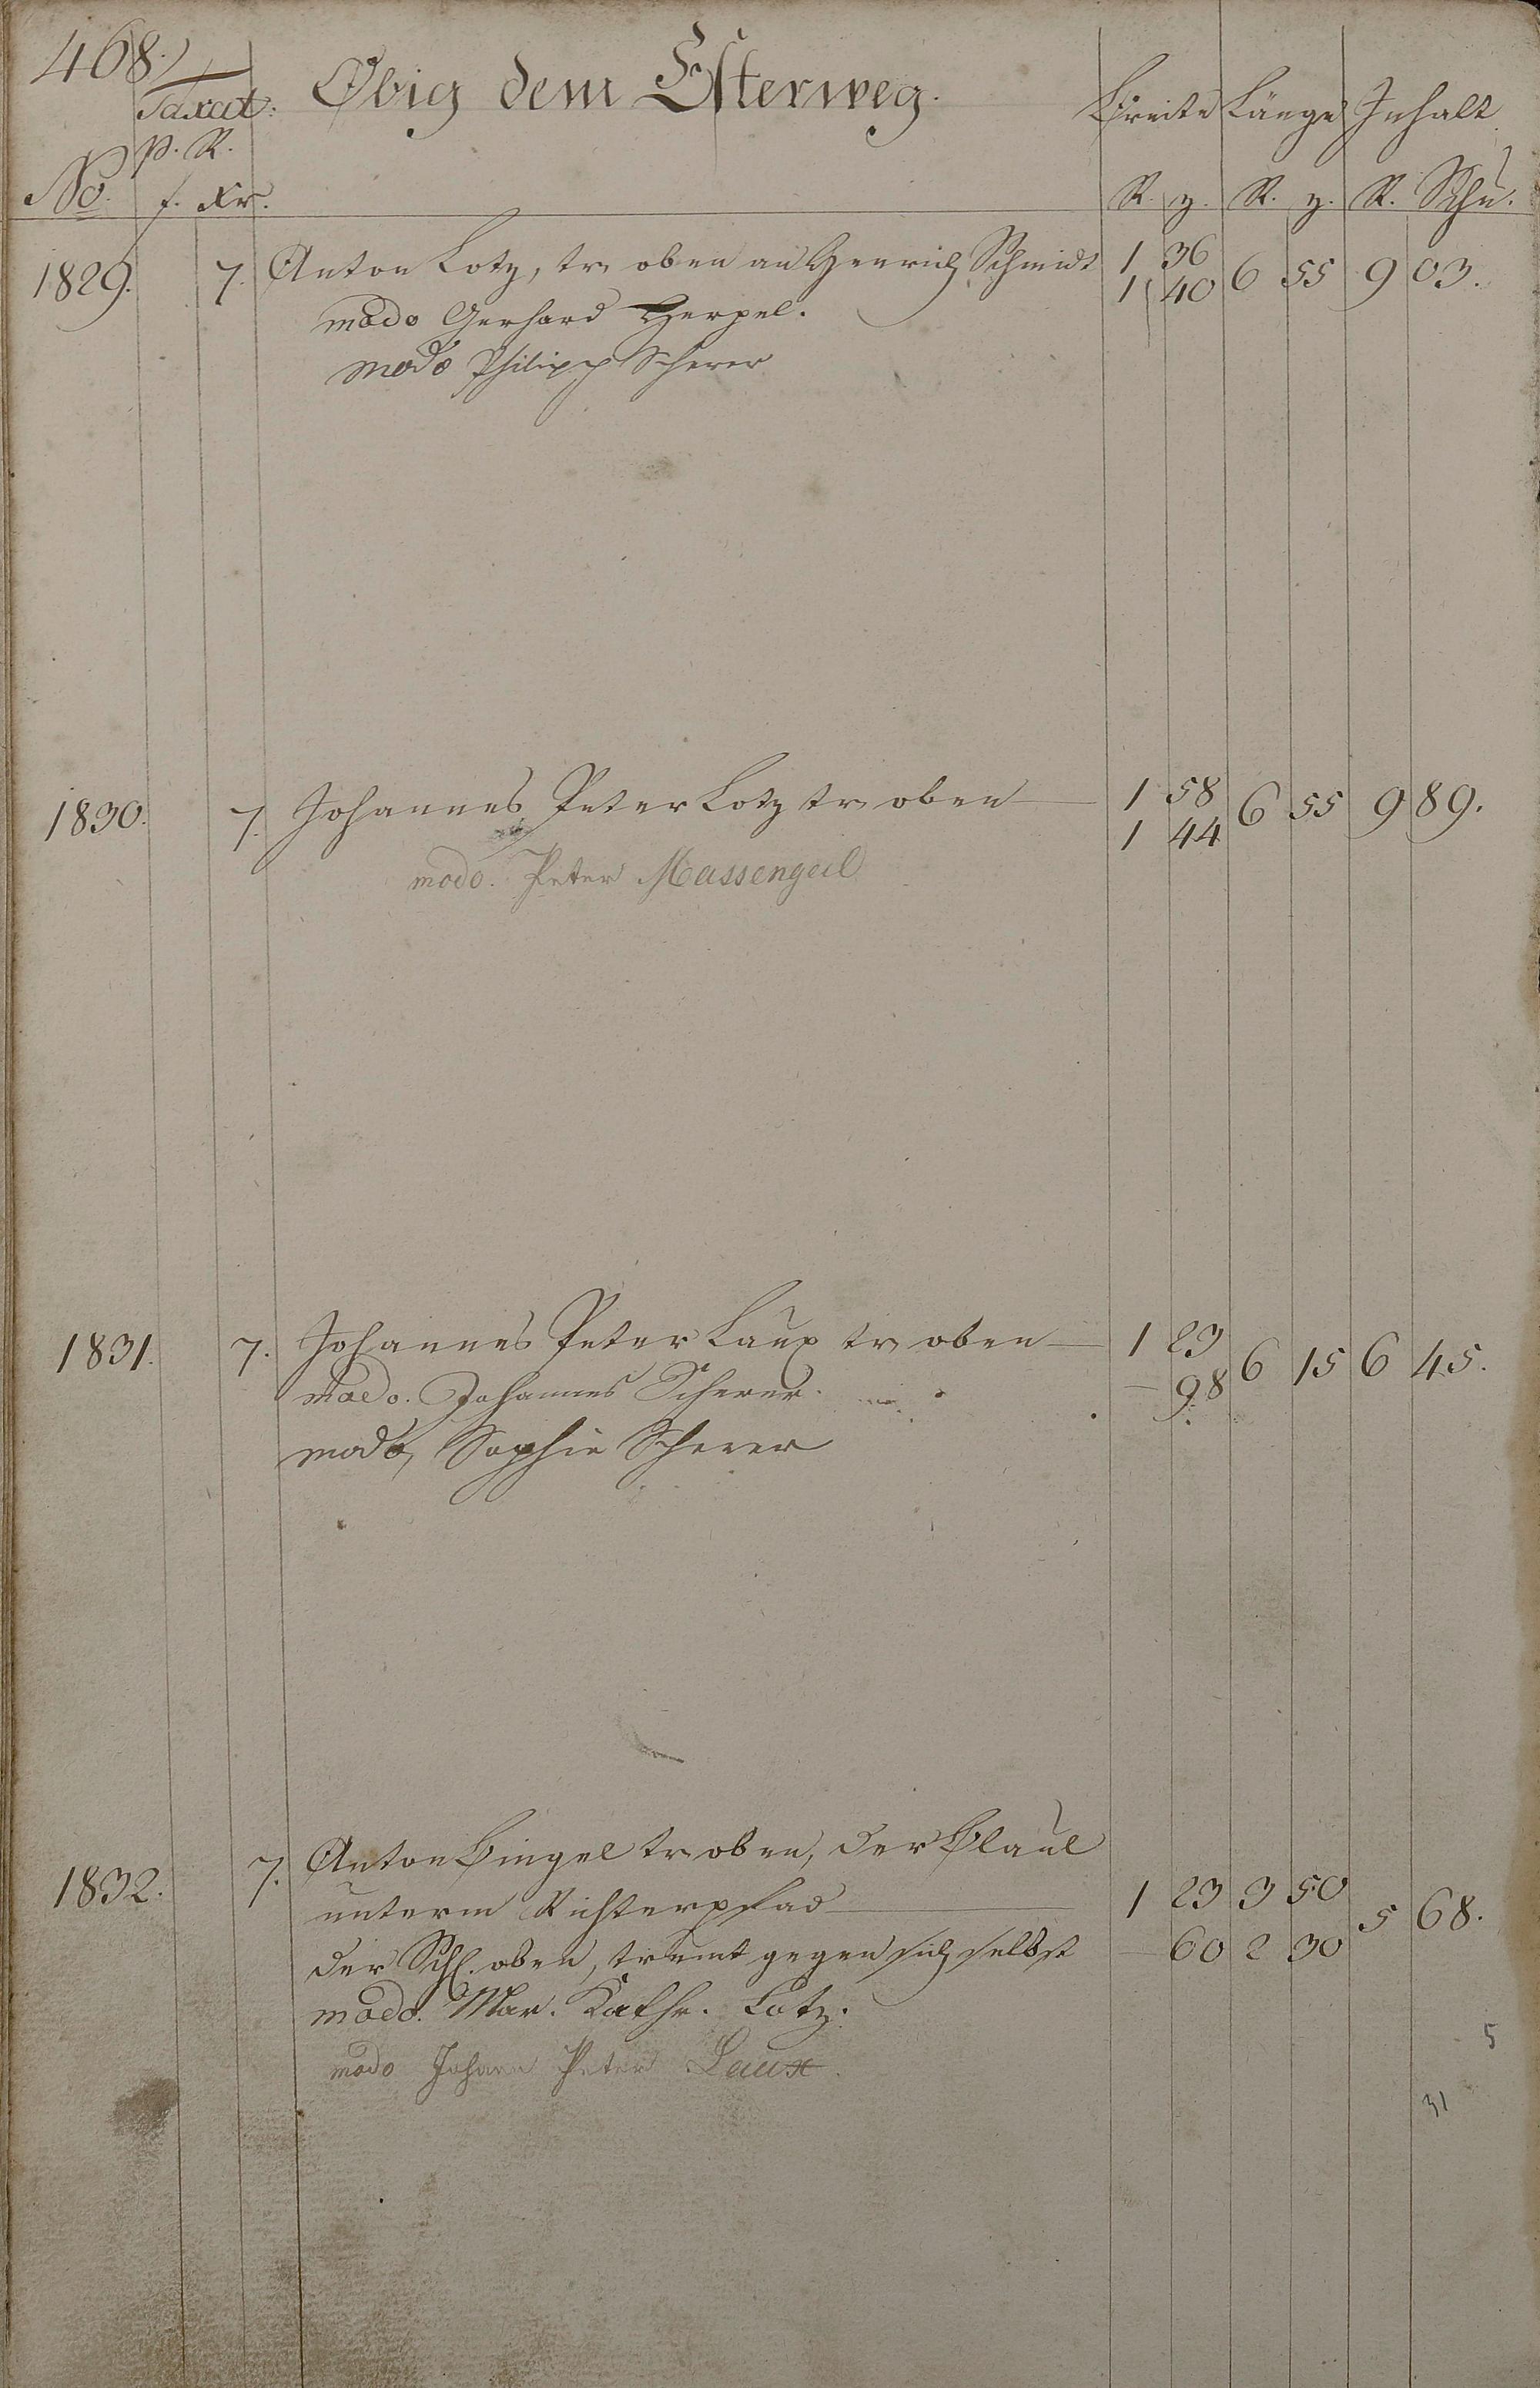 468.
Taxat: Obig dem Esterweg. Breite Länge Inhalt
p. R.
No. f. Xr. R. z. R. z. R. Schu.
1829. 7. Anton Lotz, tr. oben an Henrich Schmidt 1 36 6 55 9 03.
1 40
modo Gerhard Herpel.
modo Philipp Scherer
1830. 7. Johannes Peter Lotz tr. oben 1 58 6 55 9 89.
1 44
modo. Peter Massengeil
1831. 7. Johannes Peter Laux tr. oben 1 23 6 15 6 45.
— 98
modo. Johannes Scherer.
modo, Sophie Scherer
1832. 7. Anton Bingel tr. oben, der Blaul
unterm Richterpfad 1 23 3 50 5 68.
der Schl. oben, trennt gegen sich selbst — 60 2 30
modo. Mar. Kathr. Lotz.
modo Johann Peter Laux.
5
31